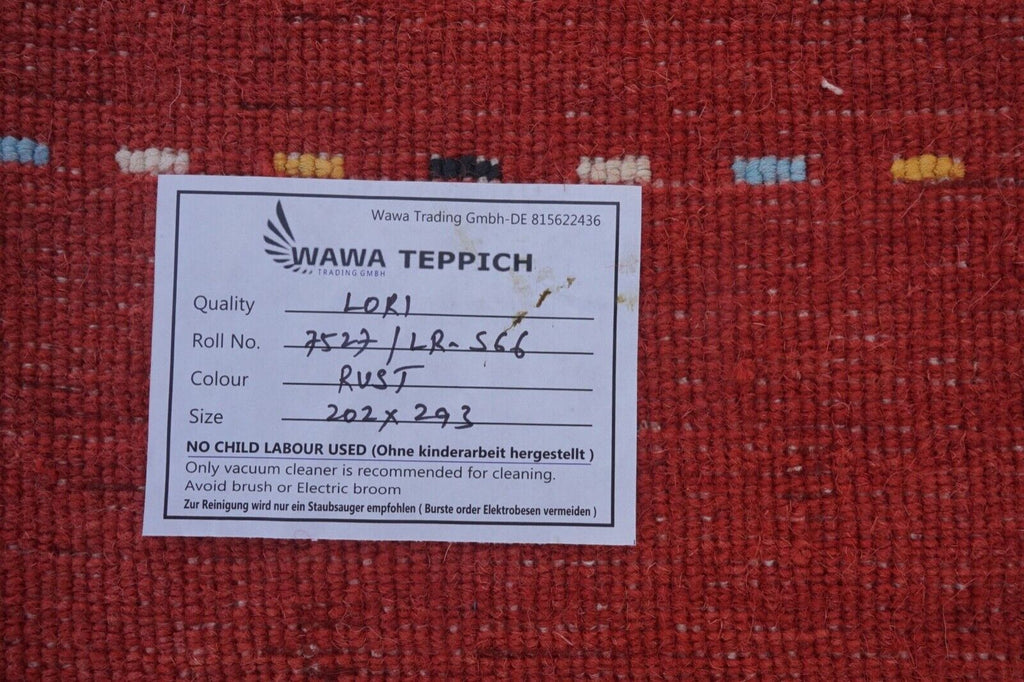 Wawa Trading Gmbh-DE 815622436
WAWA TEPPICH
TRADING GMBH
Quality LORI
Roll No. 7527/LR-S66
Colour RUST
Size 202x293
NO CHILD LABOUR USED (Ohne kinderarbeit hergestellt )
Only vacuum cleaner is recommended for cleaning.
Avoid brush or Electric broom
Zur Reinigung wird nur ein Staubsauger empfohlen ( Burste order Elektrobesen vermeiden )